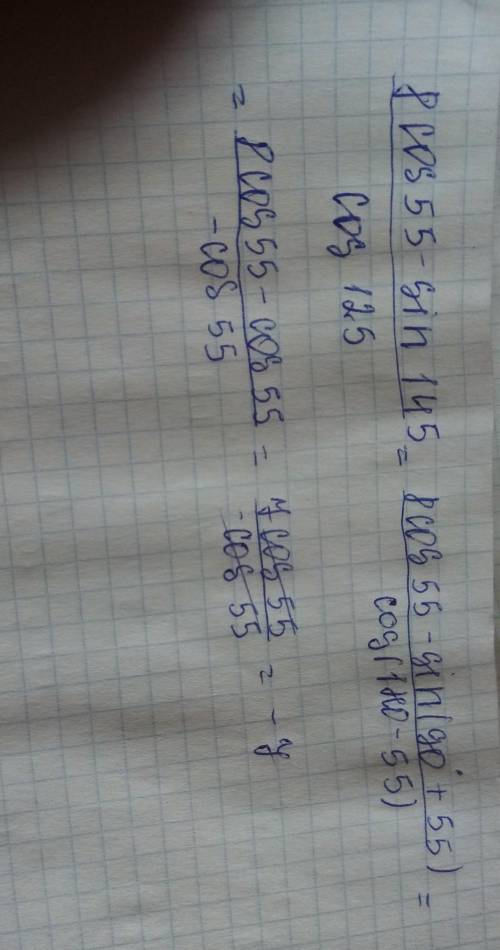 8 cos 55 - sin 145 = 8 cos 55 - sin(90° + 55) =
cos 125 cos(180 - 55)
= 8 cos 55 - cos 55 = 7 cos 55 = - 7
- cos 55 - cos 55